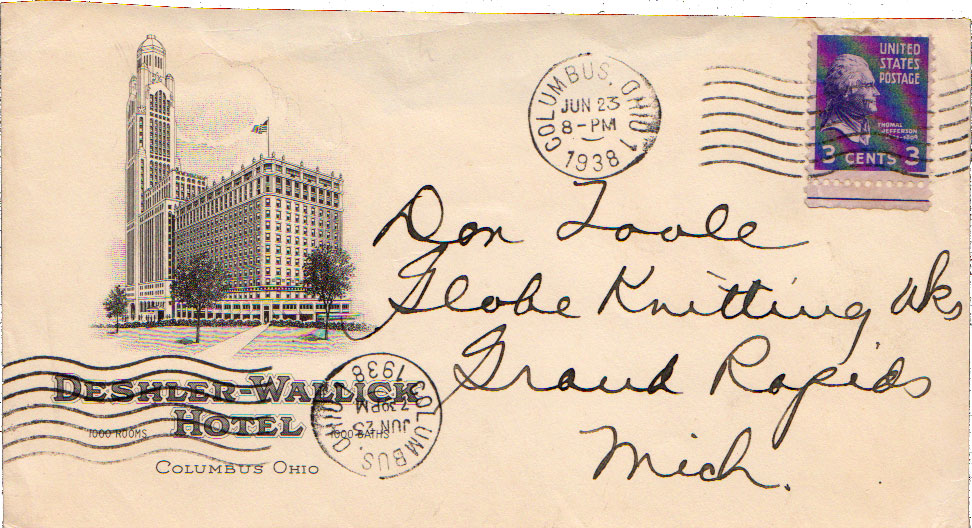 COLUMBUS, OHIO 1
JUN 23
8-PM
1938
UNITED
STATES
POSTAGE
THOMAS
JEFFERSON
3 CENTS 3
Don Toole
Globe Knitting Wks
Grand Rapids
Mich.
DESHLER-WALLICK
HOTEL
1000 ROOMS 1000 BATHS
COLUMBUS OHIO
COLUMBUS, OHIO
JUN 23
7:30PM
1938